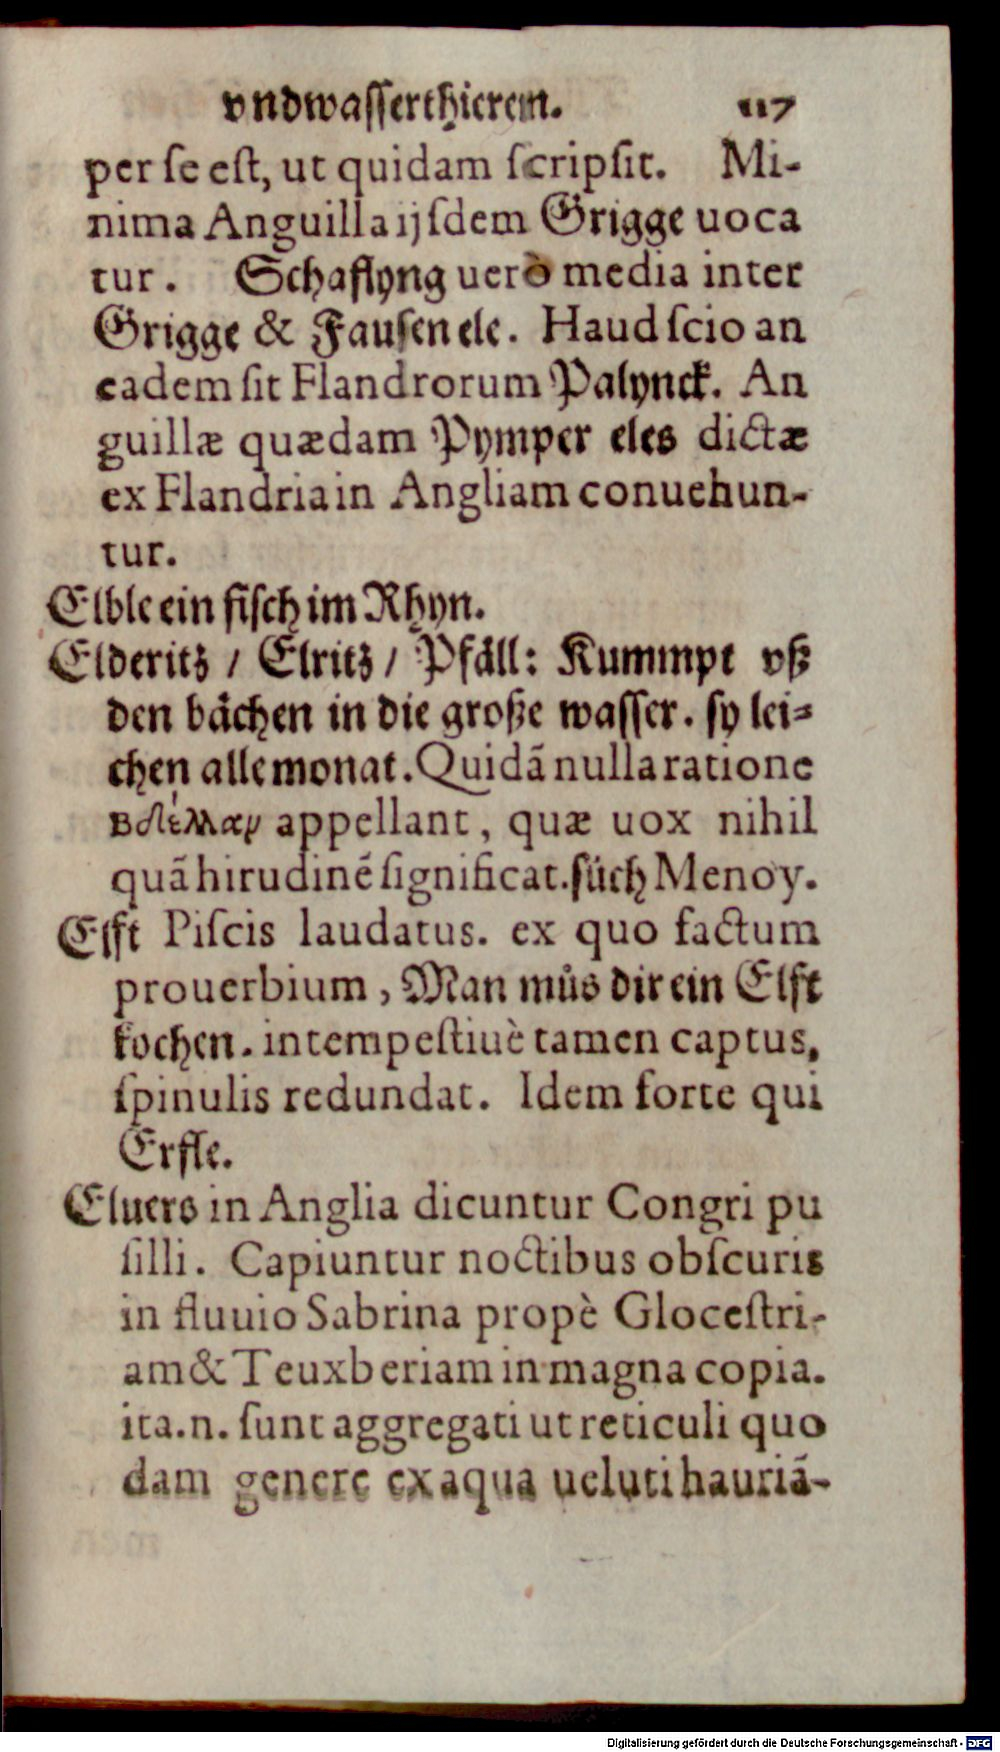 vndwasserthieren. 117
per se est, ut quidam scripsit. Mi-
nima Anguilla ijsdem Grigge uoca
tur. Schaflyng uerò media inter
Grigge & Fausen ele. Haud scio an
eadem sit Flandrorum Palynck. An
guillæ quædam Pymper eles dictæ
ex Flandria in Angliam conuehun-
tur.
Elble ein fisch im Rhyn.
Elderitz / Elritz / Pfäll: Kummpt vß
den bächen in die große wasser. sy lei-
chen alle monat. Quidā nulla ratione
appellant, quæ uox nihil
quā hirudinē significat. süch Menoy.
Elft Piscis laudatus. ex quo factum
prouerbium, Man můs dir ein Elft
kochen. intempestiuè tamen captus,
spinulis redundat. Idem forte qui
Erfle.
Eluers in Anglia dicuntur Congri pu
silli. Capiuntur noctibus obscuris
in fluuio Sabrina propè Glocestri-
am & Teuxberiam in magna copia.
ita.n. sunt aggregati ut reticuli quo
dam genere ex aqua ueluti hauriā-
Digitalisierung gefördert durch die Deutsche Forschungsgemeinschaft - DFG